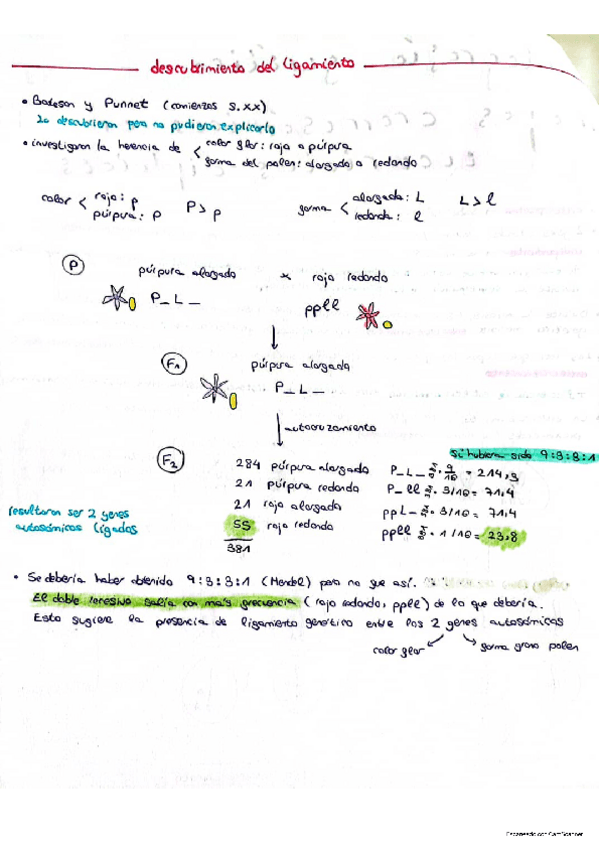 descubrimiento del ligamiento
• Bateson y Punnet (comienzos s.xx)
lo descubrieron pero no pudieron explicarlo
• investigaron la herencia de < color flor: roja o púrpura
forma del polen: alargado o redondo
color < roja: p
púrpura: P
P > p
forma < alargada: L
redonda: l
L > l
P
púrpura alargado x roja redondo
P_L_
ppll
F1
púrpura alargada
P_L_
autocruzamiento
F2
Si hubiera sido 9:3:3:1
284 púrpura alargado P_L_ · 9/16 = 214,3
21 púrpura redondo P_ll · 3/16 = 71,4
21 roja alargado ppL_ · 3/16 = 71,4
55 roja redondo ppll · 1/16 = 23,8
381
resultaron ser 2 genes
autosómicos ligados
• Se debería haber obtenido 9:3:3:1 (Mendel) pero no fue así.
El doble recesivo salía con más frecuencia (roja redondo, ppll) de lo que debería.
Esto sugiere la presencia de ligamiento genético entre los 2 genes autosómicos
color flor
forma grano polen
Escaneado con CamScanner